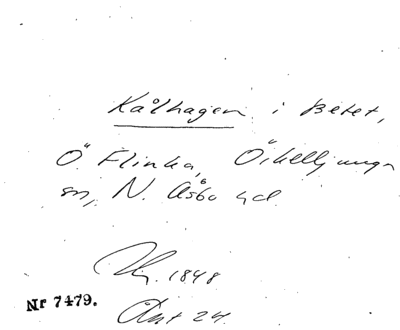 Kålhagen i Betet,
Ö. Flinka, Örkelljunga
sn, N. Åsbo hd.
1848
Nr 7479.
Akt 24.